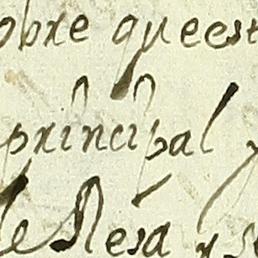 obre que est
principal y
de Resa y se